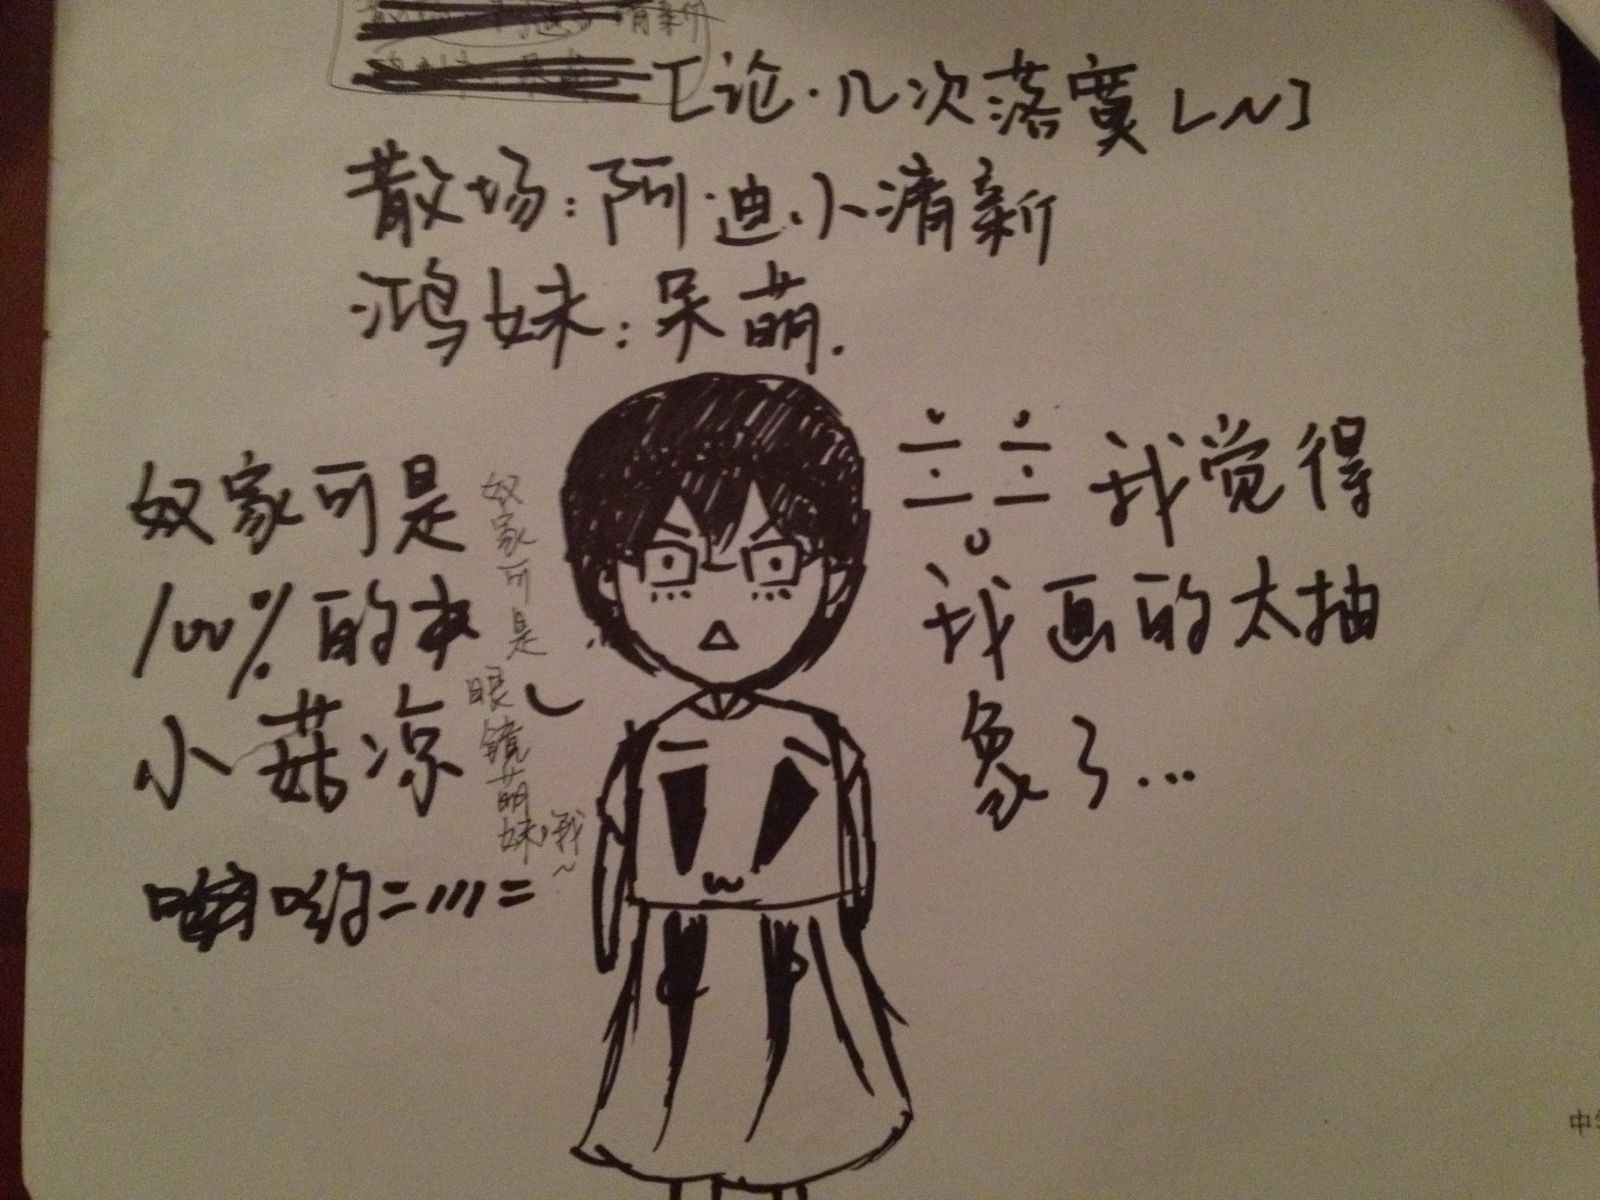 [论·几次落寞LN]
散场:阿迪小清新
鸿妹:呆萌.
奴家可是
100%的
小菇凉
奴家可是眼镜萌妹哦~
我觉得
我画的太抽
象了...
呦=///=